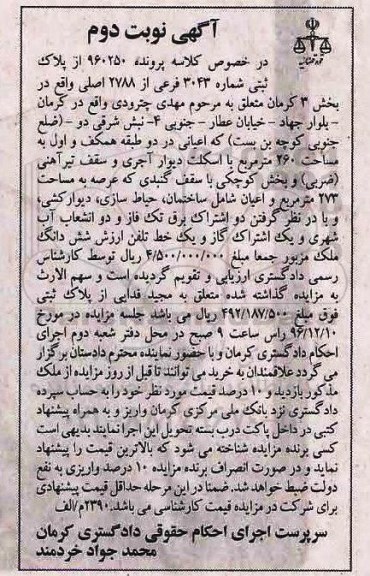 آگهی نوبت دوم
در خصوص کلاسه پرونده ۹۶۰۲۵۰ از پلاک
ثبتی شماره ۳۰۴۳ فرعی از ۲۷۸۸ اصلی واقع در
بخش ۳ کرمان متعلق به مرحوم مهدی چترودی واقع در کرمان
- بلوار جهاد - خیابان عطار - جنوبی ۴- نبش شرقی دو - (ضلع
جنوبی کوچه بن بست) که اعیانی در دو طبقه همکف و اول به
مساحت ۲۶۰ مترمربع با اسکلت دیوار آجری و سقف تیرآهنی
(ضربی) و بخش کوچکی با سقف گنبدی که عرصه به مساحت
۲۷۳ مترمربع و اعیان شامل ساختمان، حیاط سازی، دیوارکشی،
و با در نظر گرفتن دو اشتراک برق تک فاز و دو انشعاب آب
شهری و یک اشتراک گاز و یک خط تلفن ارزش شش دانگ
ملک مزبور جمعا مبلغ ۴/۵۰۰/۰۰۰/۰۰۰ ریال توسط کارشناس
رسمی دادگستری ارزیابی و تقویم گردیده است و سهم الارث
به مزایده گذاشته شده متعلق به مجید فدایی از پلاک ثبتی
فوق مبلغ ۴۹۲/۱۸۷/۵۰۰ ریال می باشد جلسه مزایده در مورخ
۹۶/۱۲/۱۰ راس ساعت ۹ صبح در محل دفتر شعبه دوم اجرای
احکام دادگستری کرمان و با حضور نماینده محترم دادستان برگزار
می گردد علاقمندان به خرید می توانند تا قبل از روز مزایده از ملک
مذکور بازدید و ۱۰ درصد قیمت مورد نظر خود را به حساب سپرده
دادگستری نزد بانک ملی مرکزی کرمان واریز و به همراه پیشنهاد
کتبی در داخل پاکت درب بسته تحویل این اجرا نمایند بدیهی است
کسی برنده مزایده شناخته می شود که بالاترین قیمت را پیشنهاد
نماید و در صورت انصراف برنده مزایده ۱۰ درصد واریزی به نفع
دولت ضبط خواهد شد. ضمنا در این مرحله حداقل قیمت پیشنهادی
برای شرکت در مزایده قیمت کارشناسی می باشد. ۲۳۹۰م/الف
سرپرست اجرای احکام حقوقی دادگستری کرمان
محمد جواد خردمند